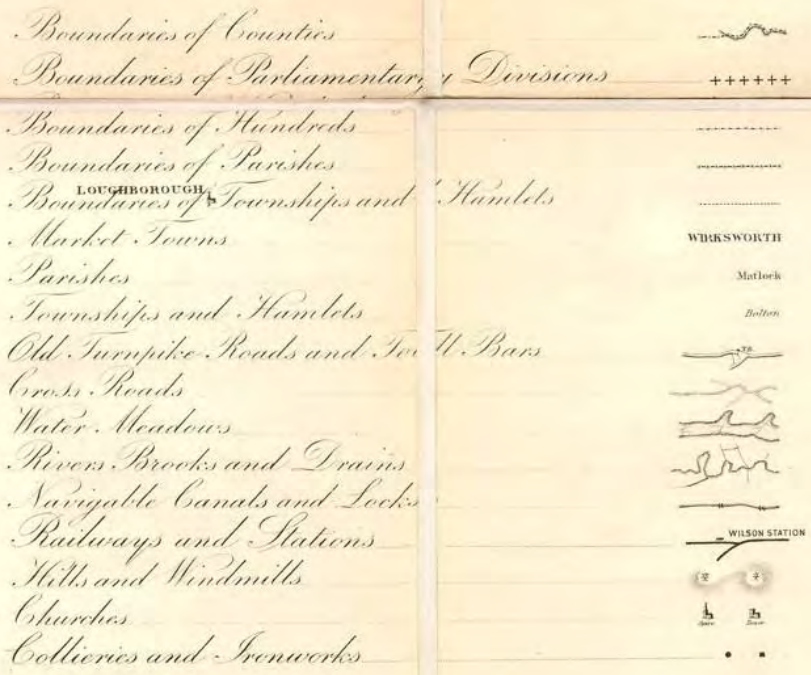 Boundaries of Counties
Boundaries of Parliamentary Divisions ++++++
Boundaries of Hundreds
Boundaries of Parishes
LOUGHBOROUGH
Boundaries of Townships and Hamlets
Market Towns WIRKSWORTH
Parishes Matlock
Townships and Hamlets Bolton
Old Turnpike Roads and Toll Bars T.B.
Cross Roads
Water Meadows
Rivers Brooks and Drains
Navigable Canals and Locks
Railways and Stations WILSON STATION
Hills and Windmills
Churches Spire Tower
Collieries and Ironworks